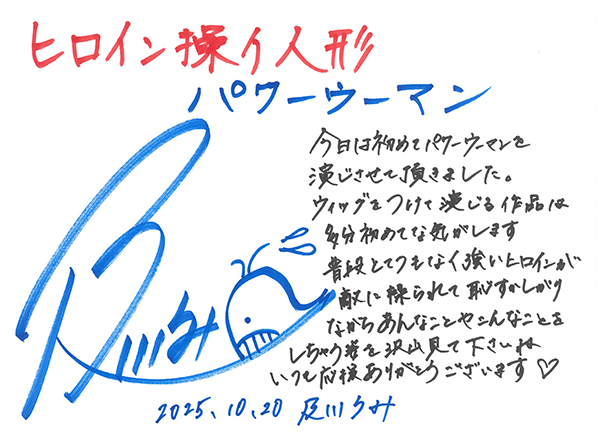 ヒロイン操り人形
パワーウーマン
今日は初めてパワーウーマンを
演じさせて頂きました。
ウィッグをつけて演じる作品は
多分初めてな気がします
普段とてつもなく強いヒロインが
敵に操られて恥ずかしがり
ながらあんなことやこんなことを
しちゃう姿を沢山見て下さいね
いつも応援ありがとうございます♡
及川うみ
2025.10.20 及川うみ